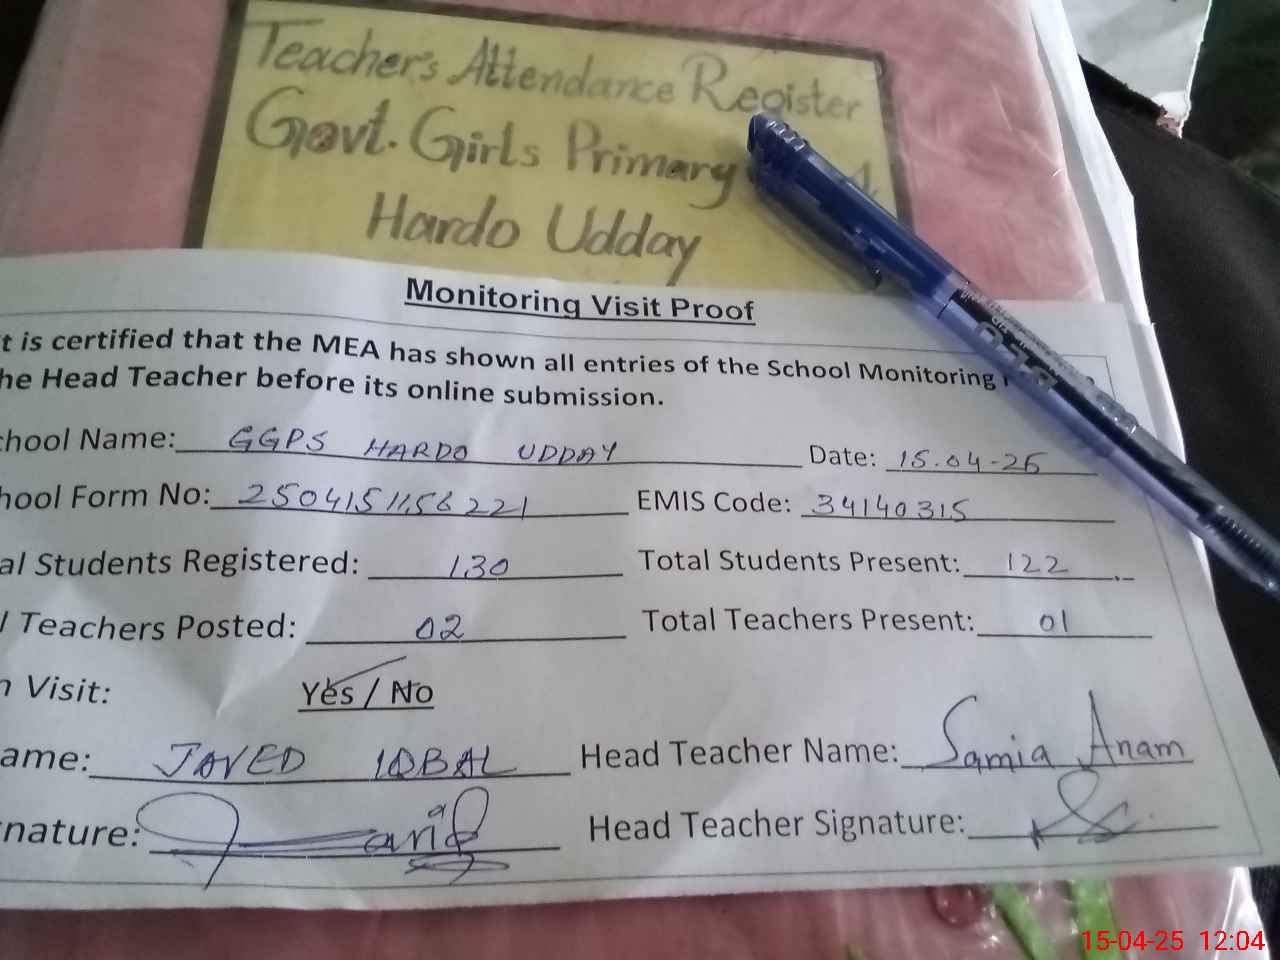 Teacher's Attendance Register
Govt. Girls Primary
Hardo Udday
Monitoring Visit Proof
t is certified that the MEA has shown all entries of the School Monitoring
he Head Teacher before its online submission.
chool Name: GGPS HARDO UDDAY Date: 15.04-25
hool Form No: 2504151156221 EMIS Code: 34140315
al Students Registered: 130 Total Students Present: 122
l Teachers Posted: 02 Total Teachers Present: 01
n Visit: Yes / No
ame: JAVED IQBAL Head Teacher Name: Samia Anam
nature: Head Teacher Signature:
15-04-25 12:04